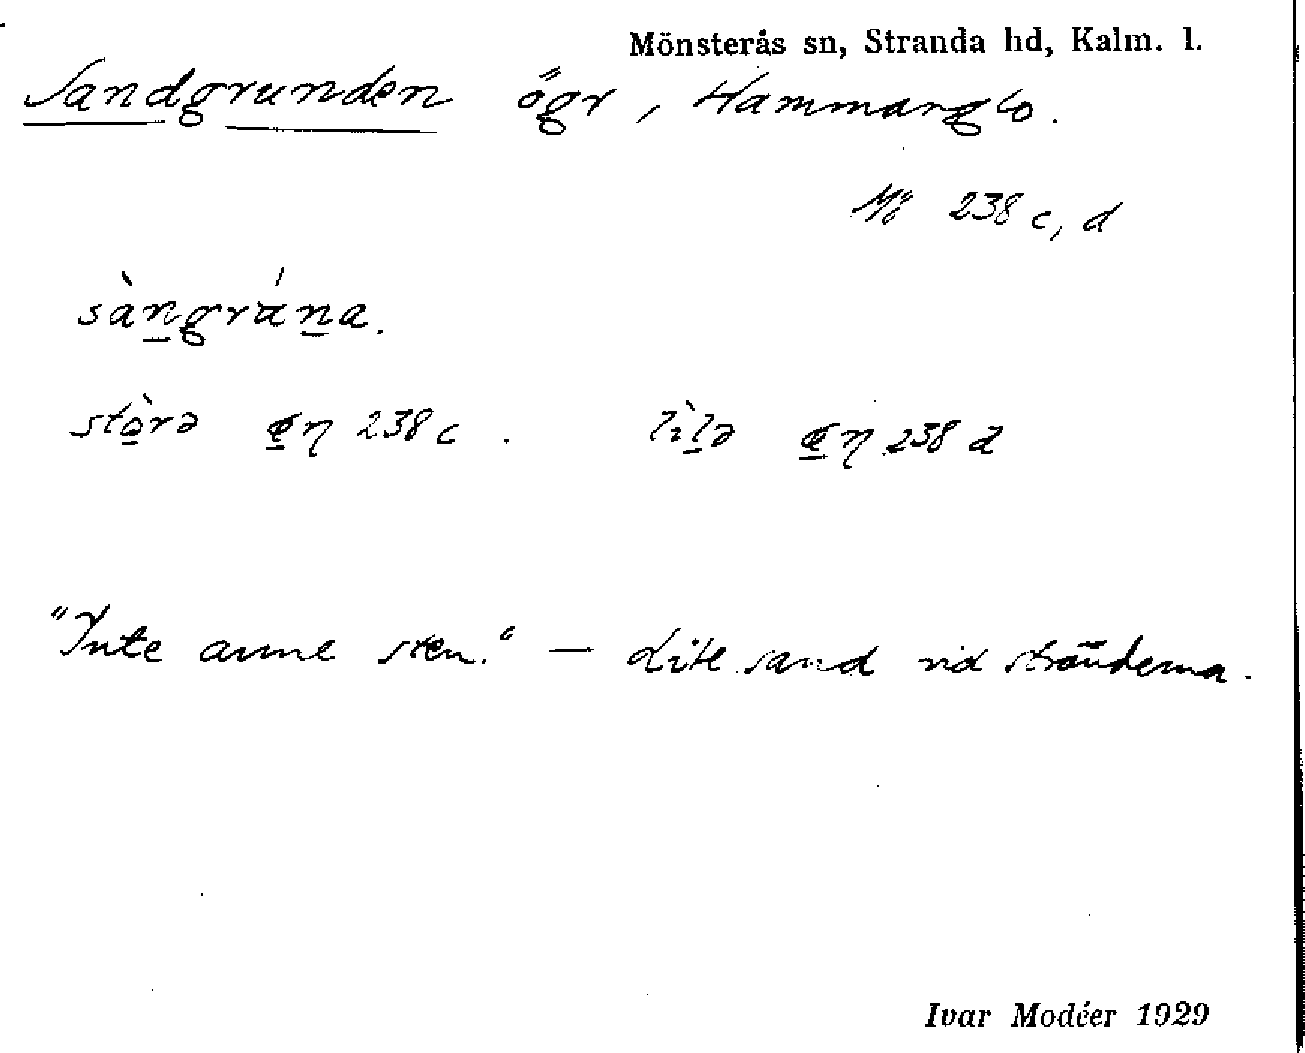 Mönsterås sn, Stranda hd, Kalm. l.
Sandgrunden ögr, Hammarglo.
Mö 238 c, d
sàngrána.
stòrə en 238 c. lìlə en 238 d
"Inte anne sten." — Lite sand vid stränderna.
Ivar Modéer 1929